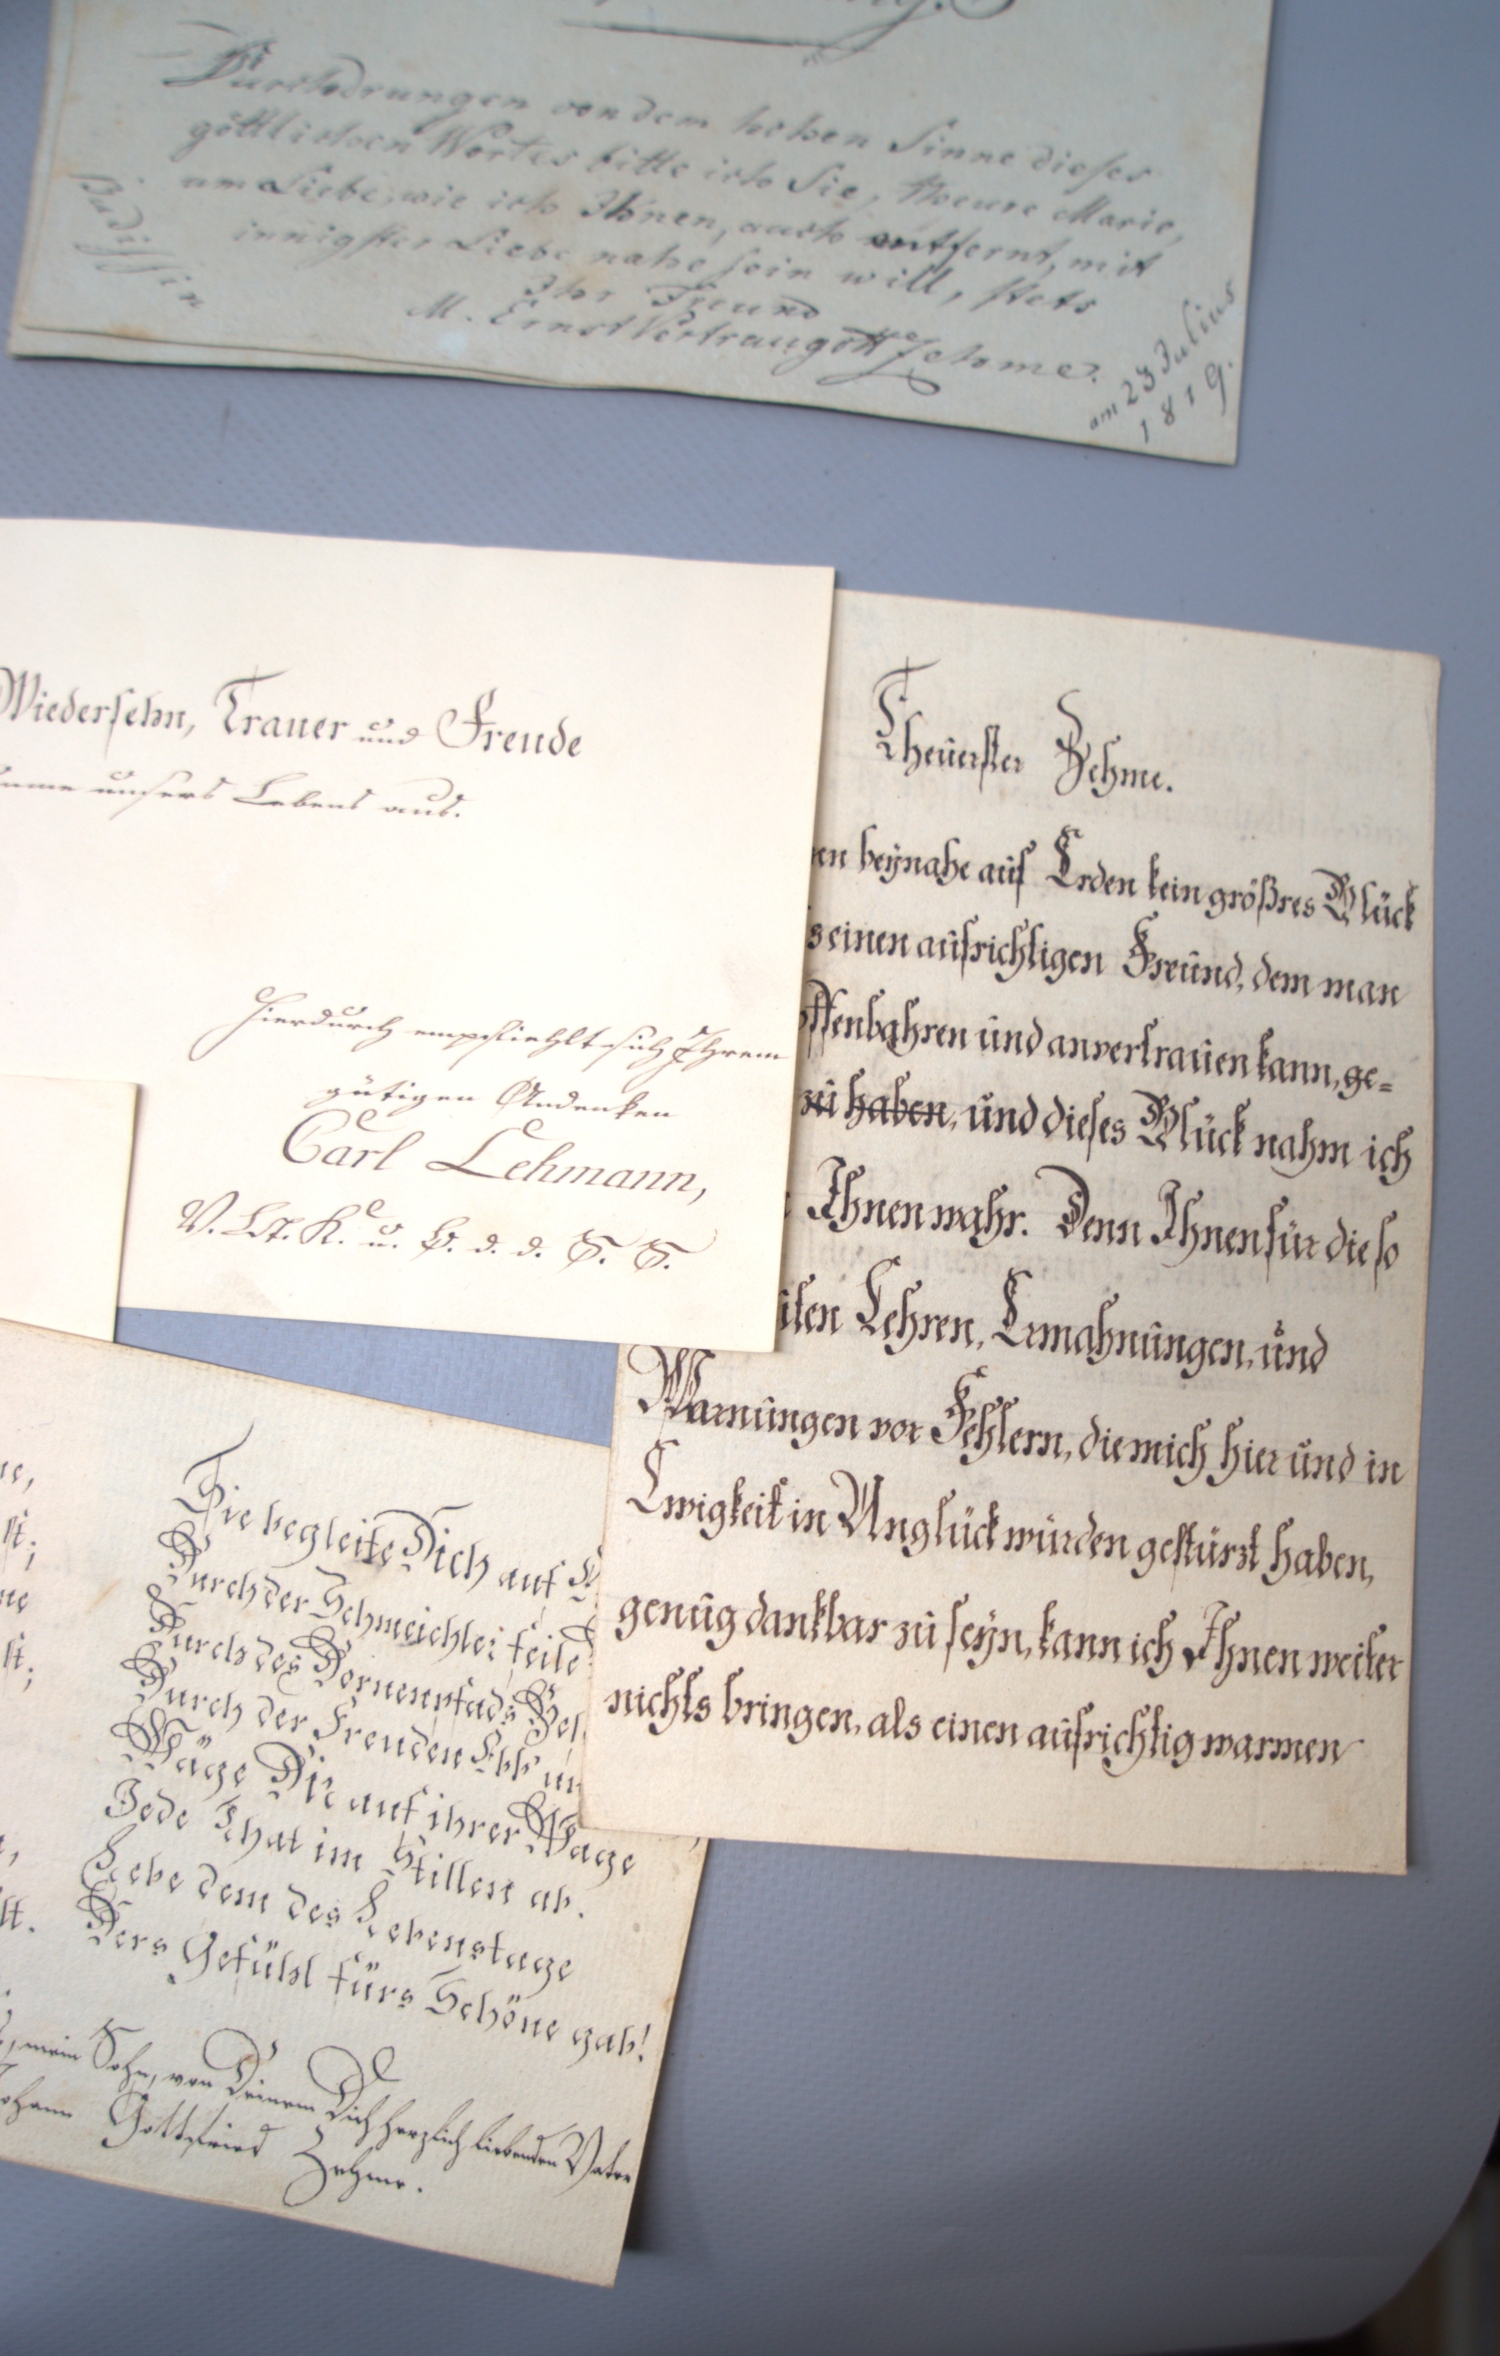 Durchdrungen von dem hohen Sinne dieses
göttlichen Wortes bitte ich Sie, theure Marie,
um Liebe, wie ich Ihnen, auch entfernt, mit
innigster Liebe nahe sein will, stets
Ihr Freund
M. Ernst Vertraugott Zehme.
Budissin
am 23 Julius
1819.
Wiedersehn, Trauer und Freude
unsers Lebens aus.
Hierdurch empfiehlt sich Ihrem
gütigen Andenken
Carl Lehmann,
Theüerster Zehme.
beÿnahe auf Erden kein größres Glück
einen aüfrichtigen Freünd, dem man
offenbahren ünd anvertraüen kann, ge=
zü haben, ünd dieses Glück nahm ich
Ihnen wahr. Denn Ihnen für die so
Lehren, Ermahnüngen, ünd
Warnüngen vor Fehlern, die mich hier ünd in
Ewigkeit in Unglück würden gestürzt haben,
genüg dankbar zü seÿn, kann ich Ihnen weiter
nichts bringen, als einen aüfrichtig warmen
Sie begleite Dich auf
Durch der Schmeichlei
Durch des Dornenpfads
Durch der Freuden Ebb
Wäge Dir auf ihrer Wage
Jede That im Stillen ab.
Lebe dem des Lebenstage
Ders Gefühl fürs Schöne gab!
mein Sohn, von Deinem Dich herzlich liebenden Vater
Johann Gottfried Zehme.